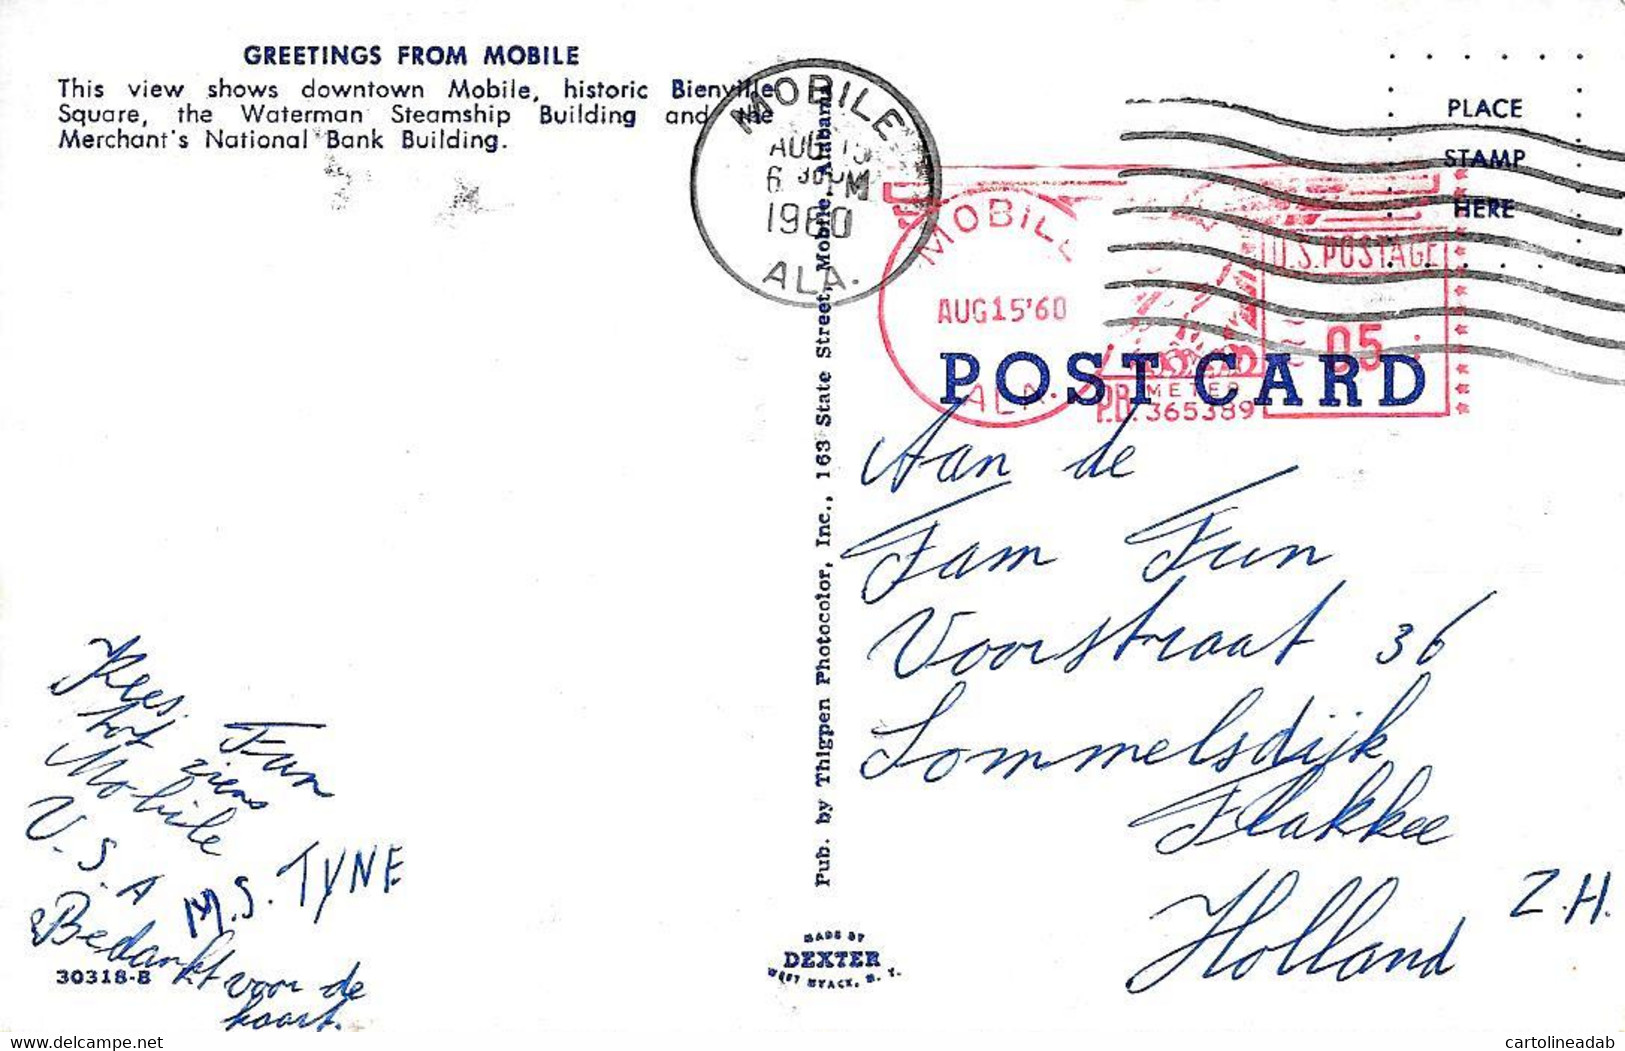 GREETINGS FROM MOBILE
This view shows downtown Mobile, historic Bienville
Square, the Waterman Steamship Building and the
Merchant's National Bank Building.
MOBILE
AUG 15
6 PM
1960
ALA.
PLACE
STAMP
HERE
MOBILE
AUG15'60
ALA.
U.S. POSTAGE
05
P.B. METER
365389
POST CARD
Pub. by Thigpen Photocolor, Inc., 163 State Street, Mobile, Alabama
Aan de
Fam Fun
Voorstraat 36
Sommelsdijk
Flakkee
Z.H.
Holland
Kees Fun
tot ziens
Mobile
U.S.A
M.S. TYNE
Bedankt voor de
kaart.
30318-B
MADE BY
DEXTER
WEST NYACK, N. Y.
www.delcampe.net
cartolineadab